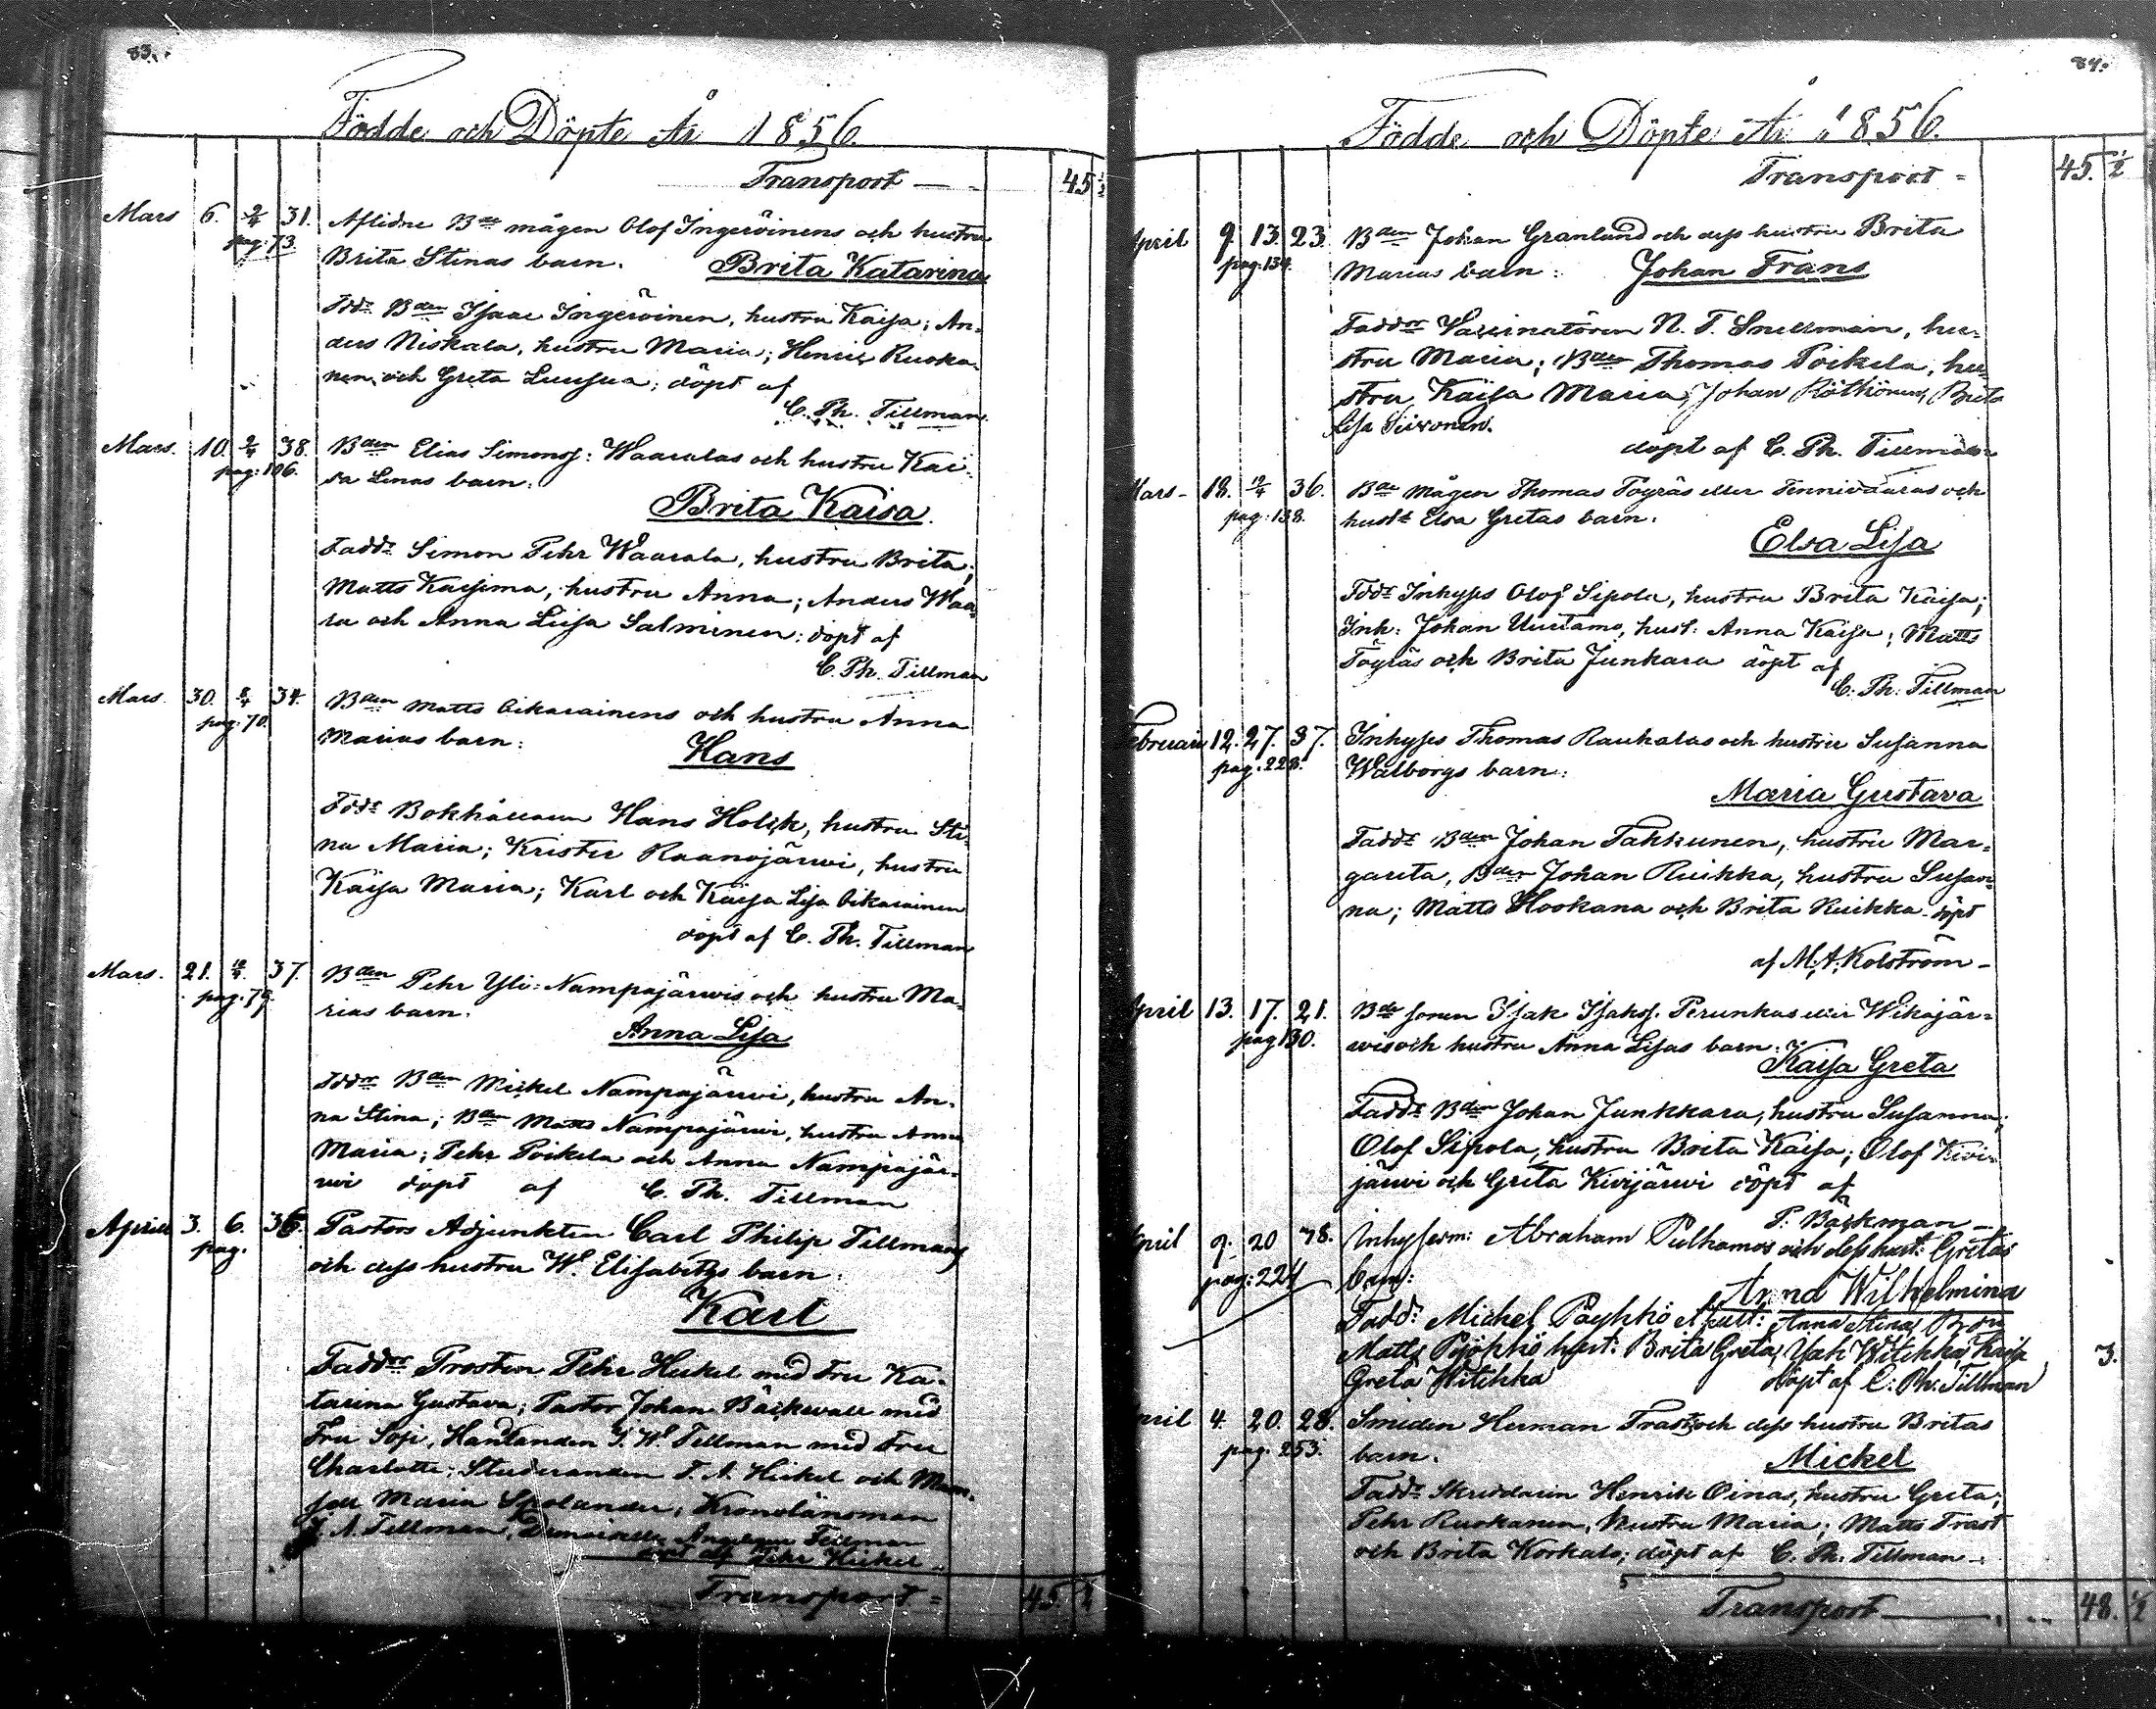 83.
Födde och Döpte År 1856.
Transport — 45 ½
Mars 6. 2/4 31. Aflidne Bde mågen Olof Ingeröinens och hustru
pag: 73. Brita Stinas barn. Brita Katarina
Fddr Bden Isaac Ingeröinen, hustru Kaisa; An-
ders Niskala, hustru Maria; Henric Ruoka-
nen och Greta Luusua; döpt af
C. Th. Tillman
Mars. 10. 2/4 38. Bden Elias Simonss: Waaralas och hustru Kai-
pag: 106. sa Lenas barn:
Brita Kaisa.
Faddr Simon Pehr Waarala, hustru Brita;
Matts Kaihima, hustru Anna; Anders Waa-
ra och Anna Liisa Salminen: döpt af
C. Th. Tillman
Mars. 30. 8/4 34. Bden Matts Oikarainens och hustru Anna
pag: 70. Marias barn:
Hans
Fddr Bokhållaren Hans Holck, hustru Sti-
na Maria; Krister Raanojärwi, hustru
Kaisa Maria; Karl och Kaisa Lisa Oikarainen
döpt af C. Th. Tillman
Mars. 21. 12/4 37. Bden Pehr Yli-Nampajärwis och hustru Ma-
pag: 79. rias barn.
Anna Lisa
Fddr Bden Mickel Nampajärwi, hustru An-
na Stina; Bden Matts Nampajärwi, hustru Anna
Maria; Pehr Poikela och Anna Nampajär-
wi döpt af C. Th. Tillman
April 3. 6. 36. Pastors Adjunkten Carl Philip Tillmans
pag. och dess hustru W. Elisabetgs barn:
Karl
Faddr Prosten Pehr Heikel med Fru Ka-
tarina Gustava; Pastor Johan Bäckwall med
Fru Sofi, Hanlanden J. W. Tillman med Fru
Charlotte; Studeranden F. A. Heikel och Mam-
sell Maria Kronolänsman
J. A. Tillman, Tillman
döpt af Pehr Heikel
Transport = 45. ½
84.
Födde och Döpte År 1856.
Transport = 45. ½
April 9 13. 23. Bden Johan Granlund och dess hustru Brita
pag: 134. Marias barn: Johan Frans
Faddr Vaccinatören N. T. Snellman, hu-
stru Maria; Bden Thomas Poikela, hu-
stru Kaisa Maria; Johan Brita
Lisa Siivonen.
döpt af C. Th. Tillman
Mars - 18. 12/4 36. Bde mågen Thomas Töyräs eller Tennivaaras och
pag: 138. hust: Elsa Gretas barn.
Elsa Lisa
Fddr Inhyses Olof Sipola, hustru Brita Kaisa;
Inh: Johan Uuttamo, hust: Anna Kaisa; Matts
Töyräs och Brita Junkara döpt af
C. Th. Tillman
Februari 12. 27. 37. Inhyses Thomas Raukalas och hustru Susanna
pag: 228. Walborgs barn:
Maria Gustava
Faddr Bden Johan Takkunen, hustru Mar-
gareta, Bden Johan Ruikka, hustru Susan-
na; Matts Hookana och Brita Ruikka döpt
af M. A. Kolström –
April 13. 17. 21. Bde sonen Isak Isakss. Perunkas eller Wikajär-
pag 130. wis och hustru Anna Lisas barn.
Kaisa Greta
Faddr Bden Johan Junkkara, hustru Susanna;
Olof Sipola, hustru Brita Kaisa; Olof Kivi-
järwi och Greta Kivijärwi döpt af
P. Bäckman –
April 9. 20 38. Inhysesm: Abraham Pulkamos och dess hust: Gretas
pag: 224 barn:
Anna Wilhelmina
Fadd: Michel Pöyhkö hust: Anna Stina; Bden
Matts Pöyhkö hust: Brita Greta; Isak Witikka, Kaisa 3.
Greta Witikka döpt af C: Ph: Tillman
April 4. 20. 28. Smeden Herman Trast och dess hustru Britas
pag. 253. barn.
Mickel
Faddr Skreddaren Henrik Oinas, hustru Greta;
Pehr Ruokanen, hustru Maria; Matts Trast
och Brita Korkalo; döpt af C. Th. Tillman –
Transport — 48. ½